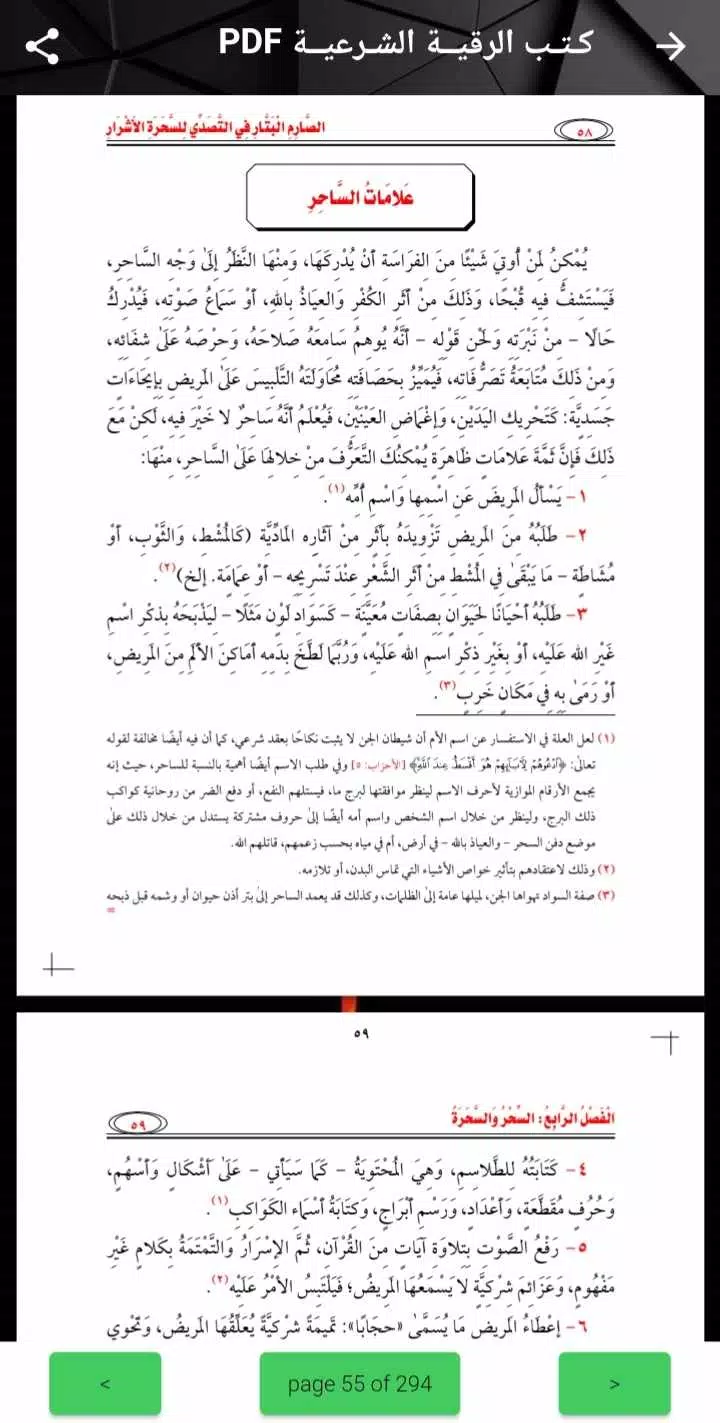 كتب الرقية الشرعية PDF
٥٨
الصَّارِمُ الْبَتَّار فِي التَّصَدِّي لِلسَّحَرَةِ الأَشْرَار
عَلَامَاتُ السَّاحِرِ
يُمْكِنُ لِمَنْ أُوتِيَ شَيْئًا مِنَ الفَرَاسَةِ أَنْ يُدْرِكَهَا، وَمِنْهَا النَّظَرُ إِلَىٰ وَجْهِ السَّاحِرِ،
فَيَسْتَشِفُّ فِيهِ قُبْحًا، وَذَلِكَ مِنْ أَثَرِ الكُفْرِ وَالعِيَاذُ بِاللهِ، أَوْ سَمَاعُ صَوْتِهِ، فَيُدْرِكُ
حَالًا - مِنْ نَبْرَتِهِ وَلَحْنِ قَوْلِهِ - أَنَّهُ يُوهِمُ سَامِعَهُ صَلَاحَهُ، وَحِرْصَهُ عَلَىٰ شِفَائِهِ،
وَمِنْ ذَلِكَ مُتَابَعَةُ تَصَرُّفَاتِهِ، فَيُمَيِّزُ بِحَصَافَتِهِ مُحَاوَلَتَهُ التَّلْبِيسَ عَلَىٰ المَرِيضِ بِإِيحَاءَاتٍ
جَسَدِيَّة: كَتَحْرِيكِ اليَدَيْنِ، وَإِغْمَاضِ العَيْنَيْنِ، فَيُعْلَمُ أَنَّهُ سَاحِرٌ لَا خَيْرَ فِيهِ، لَكِنْ مَعَ
ذَلِكَ فَإِنَّ ثَمَّةَ عَلَامَاتٍ ظَاهِرَةٍ يُمْكِنُكَ التَّعَرُّفَ مِنْ خِلَالِهَا عَلَىٰ السَّاحِرِ، مِنْهَا:
١- يَسْأَلُ المَرِيضَ عَنِ اسْمِهَا وَاسْمِ أُمِّهِ(١).
٢- طَلَبُهُ مِنَ المَرِيضِ تَزْوِيدَهُ بِأَثَرٍ مِنْ آثَارِهِ المَادِّيَّةِ (كَالمُشْطِ، وَالثَّوْبِ، أَوْ
مُشَاطَةٍ - مَا يَبْقَىٰ فِي المُشْطِ مِنْ أَثَرِ الشَّعْرِ عِنْدَ تَسْرِيحِهِ - أَوْ عِمَامَة. إلخ)(٢).
٣- طَلَبُهُ أَحْيَانًا لِحَيَوَانٍ بِصِفَاتٍ مُعَيَّنَةٍ - كَسَوَادِ لَوْنٍ مَثَلًا - لِيَذْبَحَهُ بِذِكْرِ اسْمِ
غَيْرِ اللهِ عَلَيْهِ، أَوْ بِغَيْرِ ذِكْرِ اسْمِ اللهِ عَلَيْهِ، وَرُبَّمَا لَطَّخَ بِدَمِهِ أَمَاكِنَ الأَلَمِ مِنَ المَرِيضِ،
أَوْ رَمَىٰ بِهِ فِي مَكَانٍ خَرِبٍ(٣).
(١) لعل العلة في الاستفسار عن اسم الأم أن شيطان الجن لا يثبت نكاحًا بعقد شرعي، كما أن فيه أيضًا مخالفة لقوله
تعالىٰ: ﴿ادْعُوهُمْ لِآبَائِهِمْ هُوَ أَقْسَطُ عِندَ اللَّهِ﴾ [الأحزاب: ٥] وفي طلب الاسم أيضًا أهمية بالنسبة للساحر، حيث إنه
يجمع الأرقام الموازية لأحرف الاسم لينظر موافقتها لبرج ما، فيستلهم النفع، أو دفع الضر من روحانية كواكب
ذلك البرج، ولينظر من خلال اسم الشخص واسم أمه أيضًا إلىٰ حروف مشتركة يستدل من خلال ذلك علىٰ
موضع دفن السحر - والعياذ بالله - في أرض، أم في مياه بحسب زعمهم، قاتلهم الله.
(٢) وذلك لاعتقادهم بتأثير خواص الأشياء التي تماس البدن، أو تلازمه.
(٣) صفة السواد تهواها الجن، لميلها عامة إلىٰ الظلمات، وكذلك قد يعمد الساحر إلىٰ بتر أذن حيوان أو وشمه قبل ذبحه
=
٥٩
الْفَصْلُ الرَّابِعُ: السِّحْرُ وَالسَّحَرَةُ
٥٩
٤- كِتَابَتُهُ لِلطَّلَاسِمِ، وَهِيَ المُحْتَوِيَةُ - كَمَا سَيَأْتِي - عَلَىٰ أَشْكَالٍ وَأَسْهُمٍ،
وَحُرُفٍ مُقَطَّعَةٍ، وَأَعْدَادٍ، وَرَسْمِ أَبْرَاجٍ، وَكِتَابَةُ أَسْمَاءِ الكَوَاكِبِ(١).
٥- رَفْعُ الصَّوْتِ بِتِلَاوَةِ آيَاتٍ مِنَ القُرْآنِ، ثُمَّ الإِسْرَارُ وَالتَّمْتَمَةُ بِكَلَامٍ غَيْرِ
مَفْهُومٍ، وَعَزَائِمَ شِرْكِيَّةٍ لَا يَسْمَعُهَا المَرِيضُ؛ فَيَلْتَبِسُ الأَمْرُ عَلَيْهِ(٢).
٦- إِعْطَاءُ المَرِيضِ مَا يُسَمَّىٰ «حِجَابًا»: تَمِيمَةً شِرْكِيَّةً يُعَلِّقُهَا المَرِيضُ، وَتَحْوِي
<
page 55 of 294
>